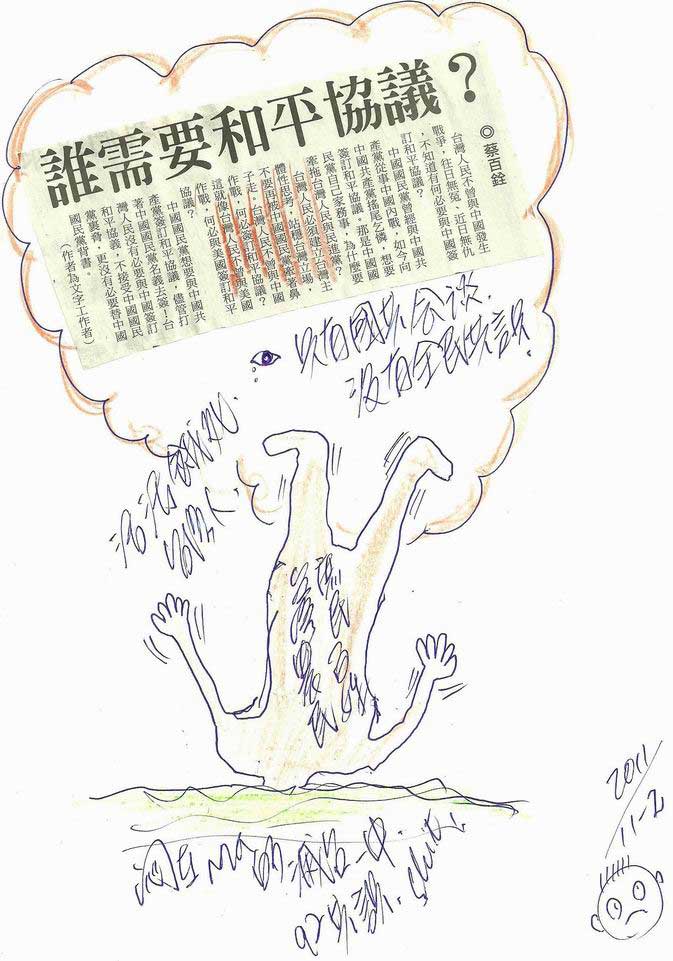 誰需要和平協議？
◎ 蔡百銓
台灣人民不曾與中國發生
戰爭，往日無冤、近日無仇
，不知道有何必要與中國簽
訂和平協議？
中國國民黨曾經與中國共
產黨從事中國內戰，如今向
中國共產黨搖尾乞憐，想要
簽訂和平協議，那是中國國
民黨自己家務事，為什麼要
牽拖台灣人民與民進黨？
台灣人民必須建立台灣主
體性思考，站穩台灣立場，
不要中國國民黨牽著鼻
子走。台灣人民不曾與中國
作戰，何必簽和平協議？
這就像台灣人民不曾與美國
作戰，何必與美國簽訂和平
協議？
中國國民黨想要與中國共
產黨簽訂和平協議，儘管打
著中國國民黨名義去簽！台
灣人民沒有必要與中國簽訂
和平協議，不接受中國國民
黨裹脅，更沒有必要替中國
國民黨背書。
（作者為文字工作者）
只有國共会談.
沒有全民共識.
台灣人.
農民
MA的 一中.
92共識. shit.
2011/
11-2